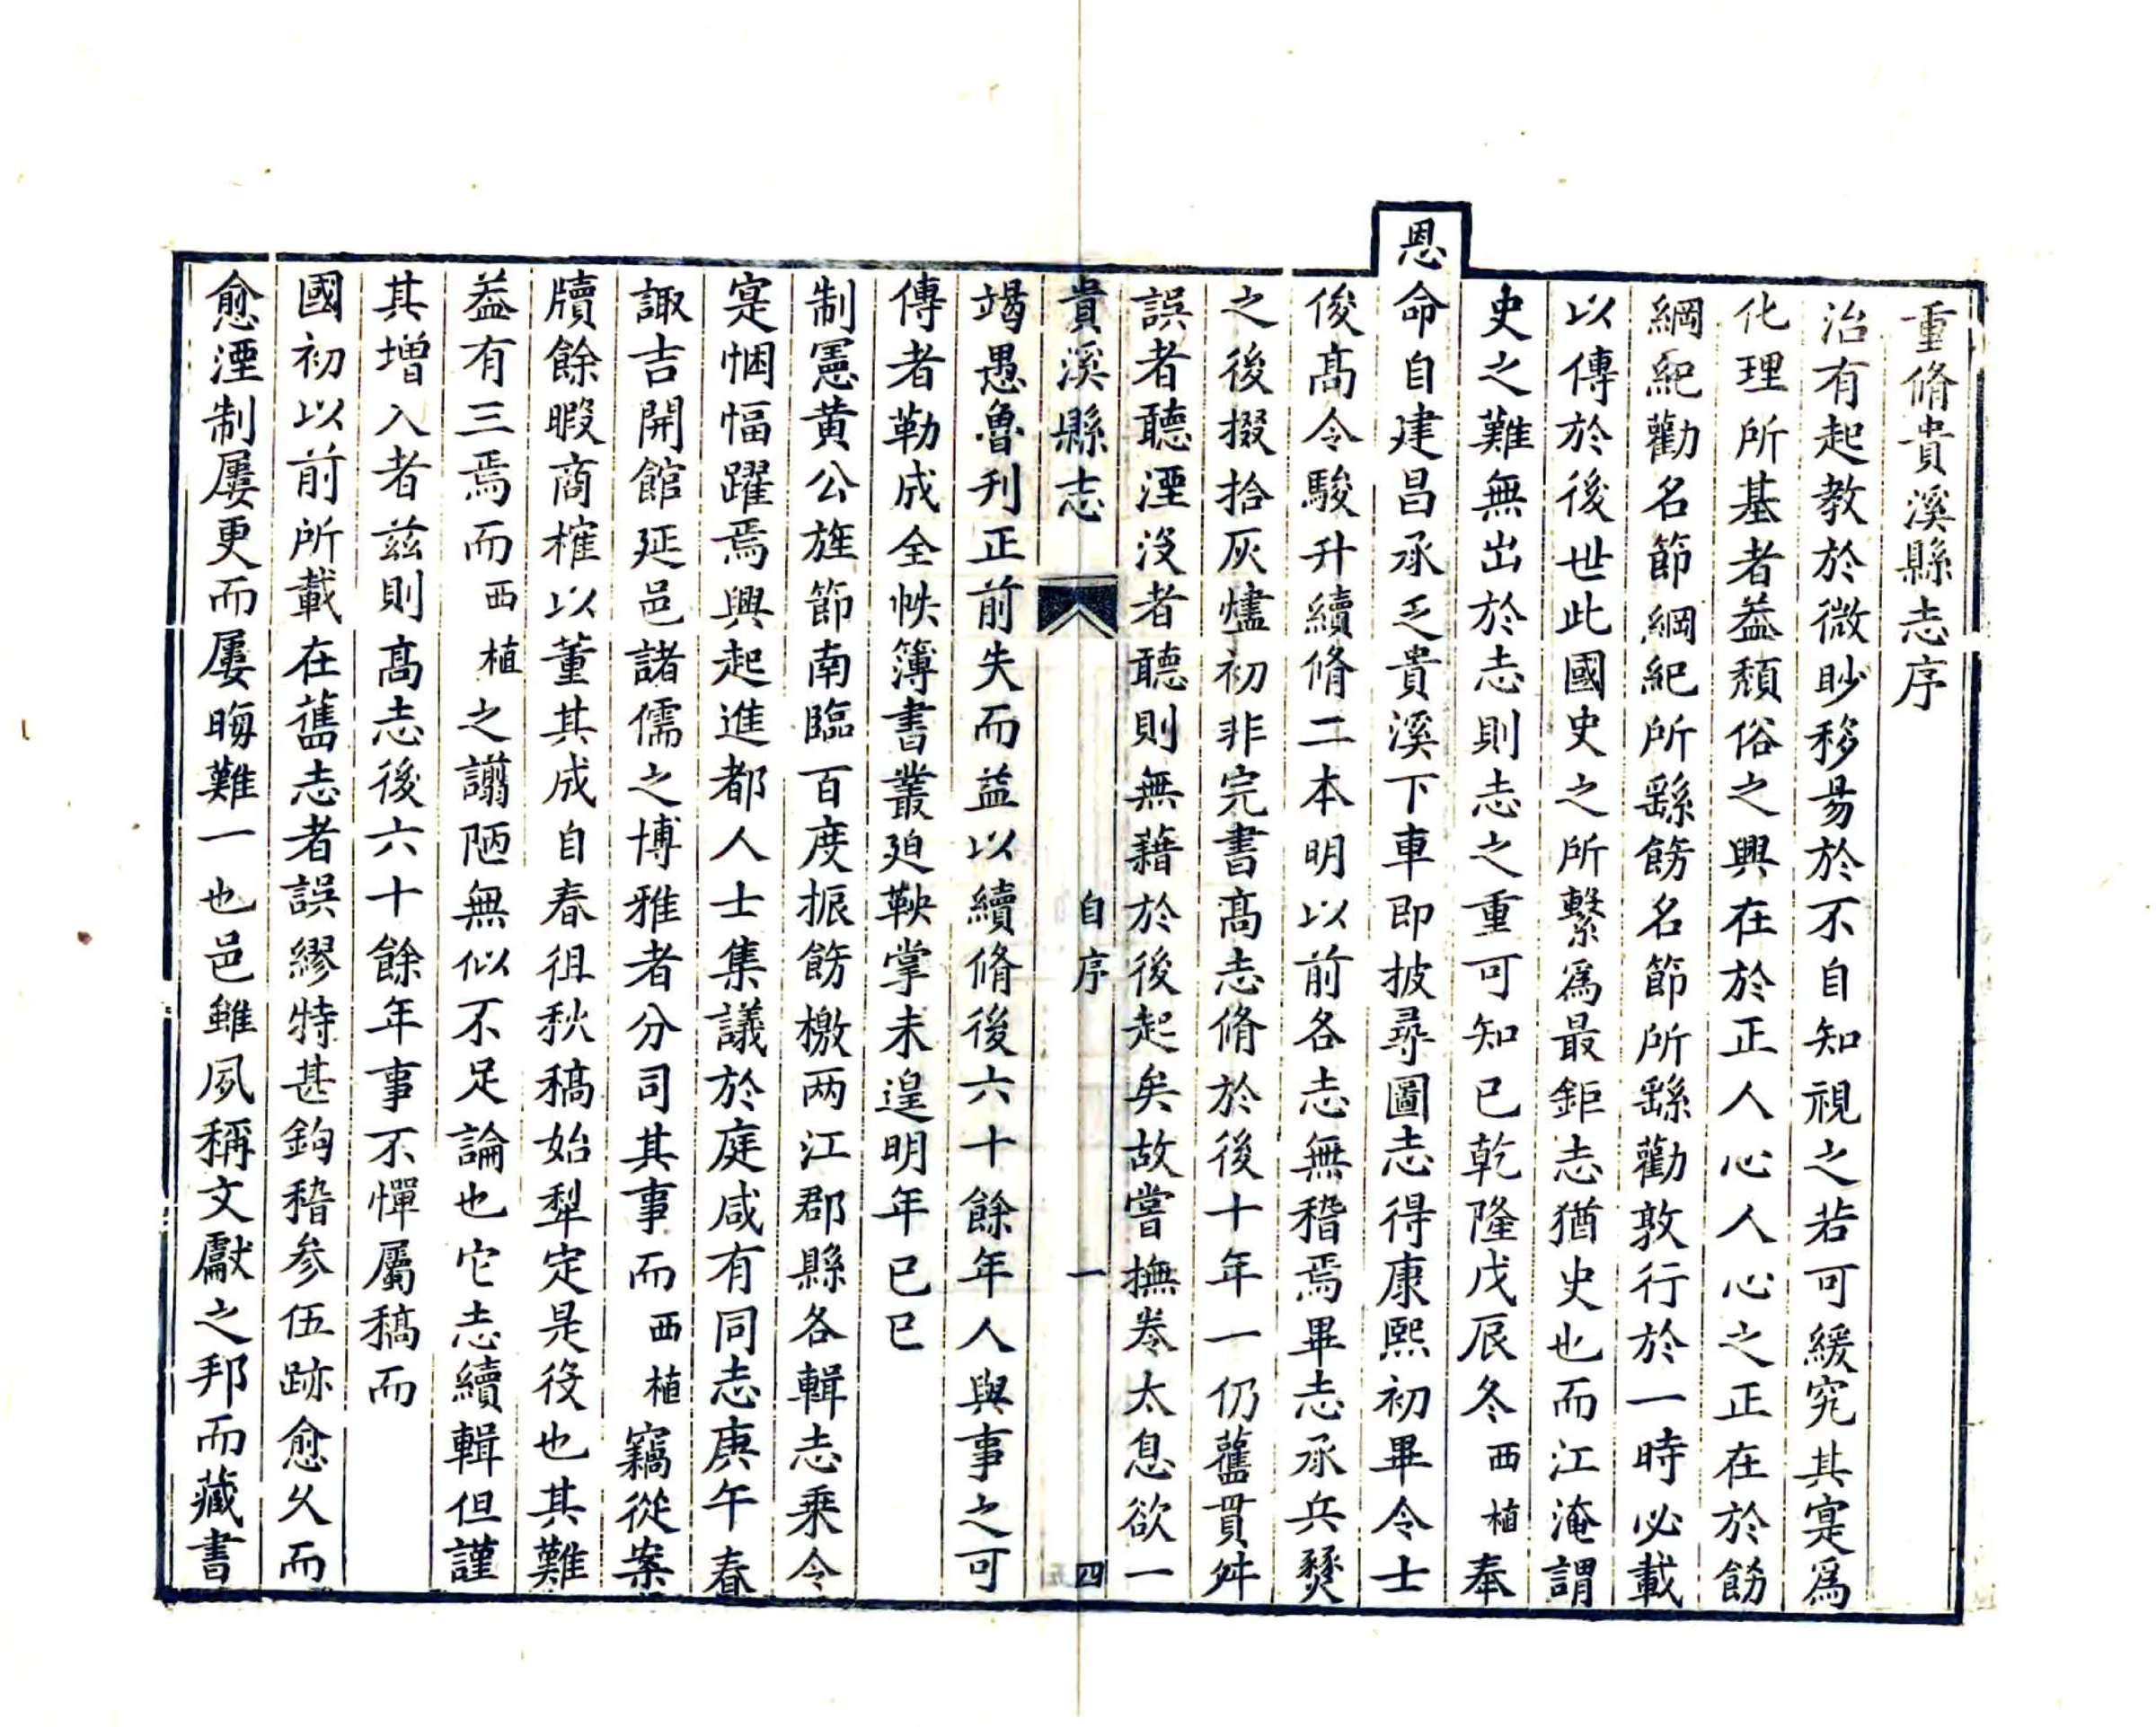 重脩貴溪縣志序
治有起教於微眇移昜於不自知視之若可緩究其寔爲
化理所基者葢頽俗之興在於正人心人心之正在於飭
綱紀勸名節綱紀所繇飭名節所繇勸敦行於一時必載
以傳於後世此國史之所繫爲最鉅志猶史也而江淹謂
史之難無出於志則志之重可知已乾隆戊辰冬西植奉
恩命自建昌承乏貴溪下車即披尋圖志得康熙初畢令士
俊髙令駿升續脩二本明以前各志無稽焉畢志承兵燹
之後掇拾灰燼初非完書髙志脩於後十年一仍舊貫舛
誤者聽湮沒者聽則無藉於後起矣故嘗撫卷太息欲一
貴溪縣志
自序
一
四
竭愚魯刋正前失而益以續脩後六十餘年人與事之可
傳者勒成全帙簿書叢廹鞅掌未遑明年已巳
制憲黄公旌節南臨百度振飭檄两江郡縣各輯志乗令
寔悃愊躍焉興起進都人士集議於庭咸有同志庚午春
諏吉開館延邑諸儒之博雅者分司其事而西植竊從案
牘餘暇商榷以董其成自春徂秋稿始犁定是役也其難
葢有三焉而西植之譾陋無似不足論也它志續輯但謹
其增入者兹則髙志後六十餘年事不憚屬稿而
國初以前所載在舊志者誤繆特甚鈎稽参伍跡愈久而
愈湮制屢更而屢晦難一也邑雖夙稱文獻之邦而藏書